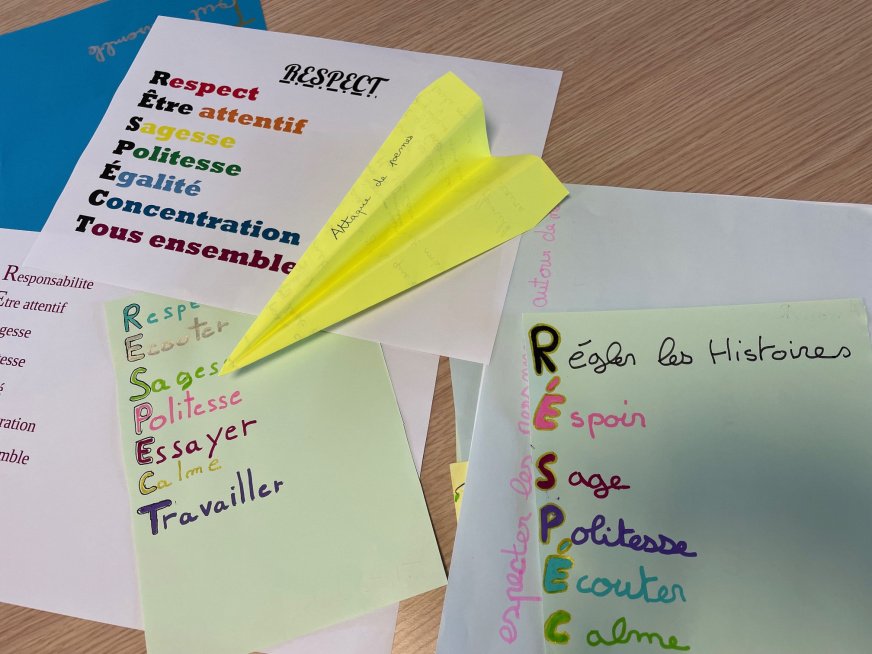 Tout ensemble
RESPECT
Respect
Être attentif
Sagesse
Politesse
Égalité
Concentration
Tous ensemble
Attaque de poèmes
Responsabilite
Etre attentif
gesse
esse
é
ration
mble
Respe
Ecouter
Sagess
Politesse
Essayer
Calme
Travailler
especter les autour de
Régler les Histoires
Éspoir
Sage
Politesse
Écouter
Calme